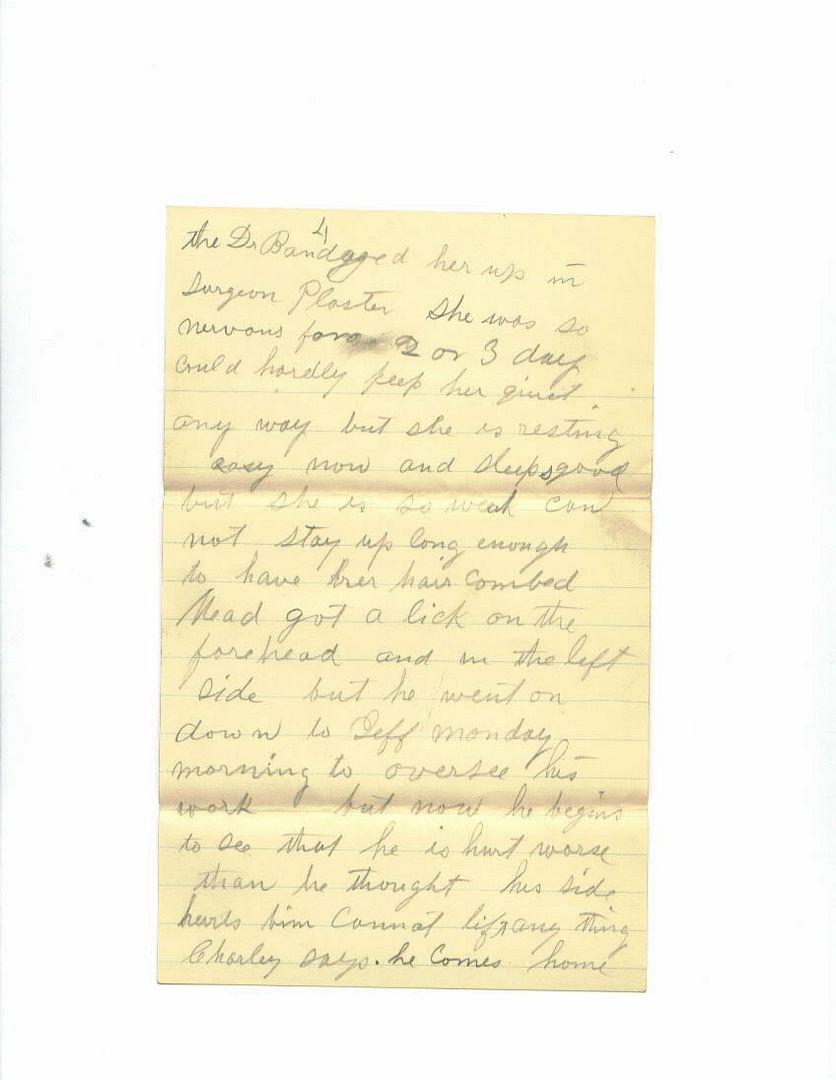 4
the Dr Bandaged her up in
Surgeon Plaster she was so
nervous for 2 or 3 day
could hardly keep her quiet
any way but she is resting
easy now and sleeps good
but she is so weak can
not stay up long enough
to have her hair combed
Mead got a lick on the
forehead and in the left
side but he went on
down to Jeff monday
morning to oversee his
work but now he begins
to see that he is hurt worse
than he thought his side
hurts him Cannot lift any thing
Charley says. he Comes home